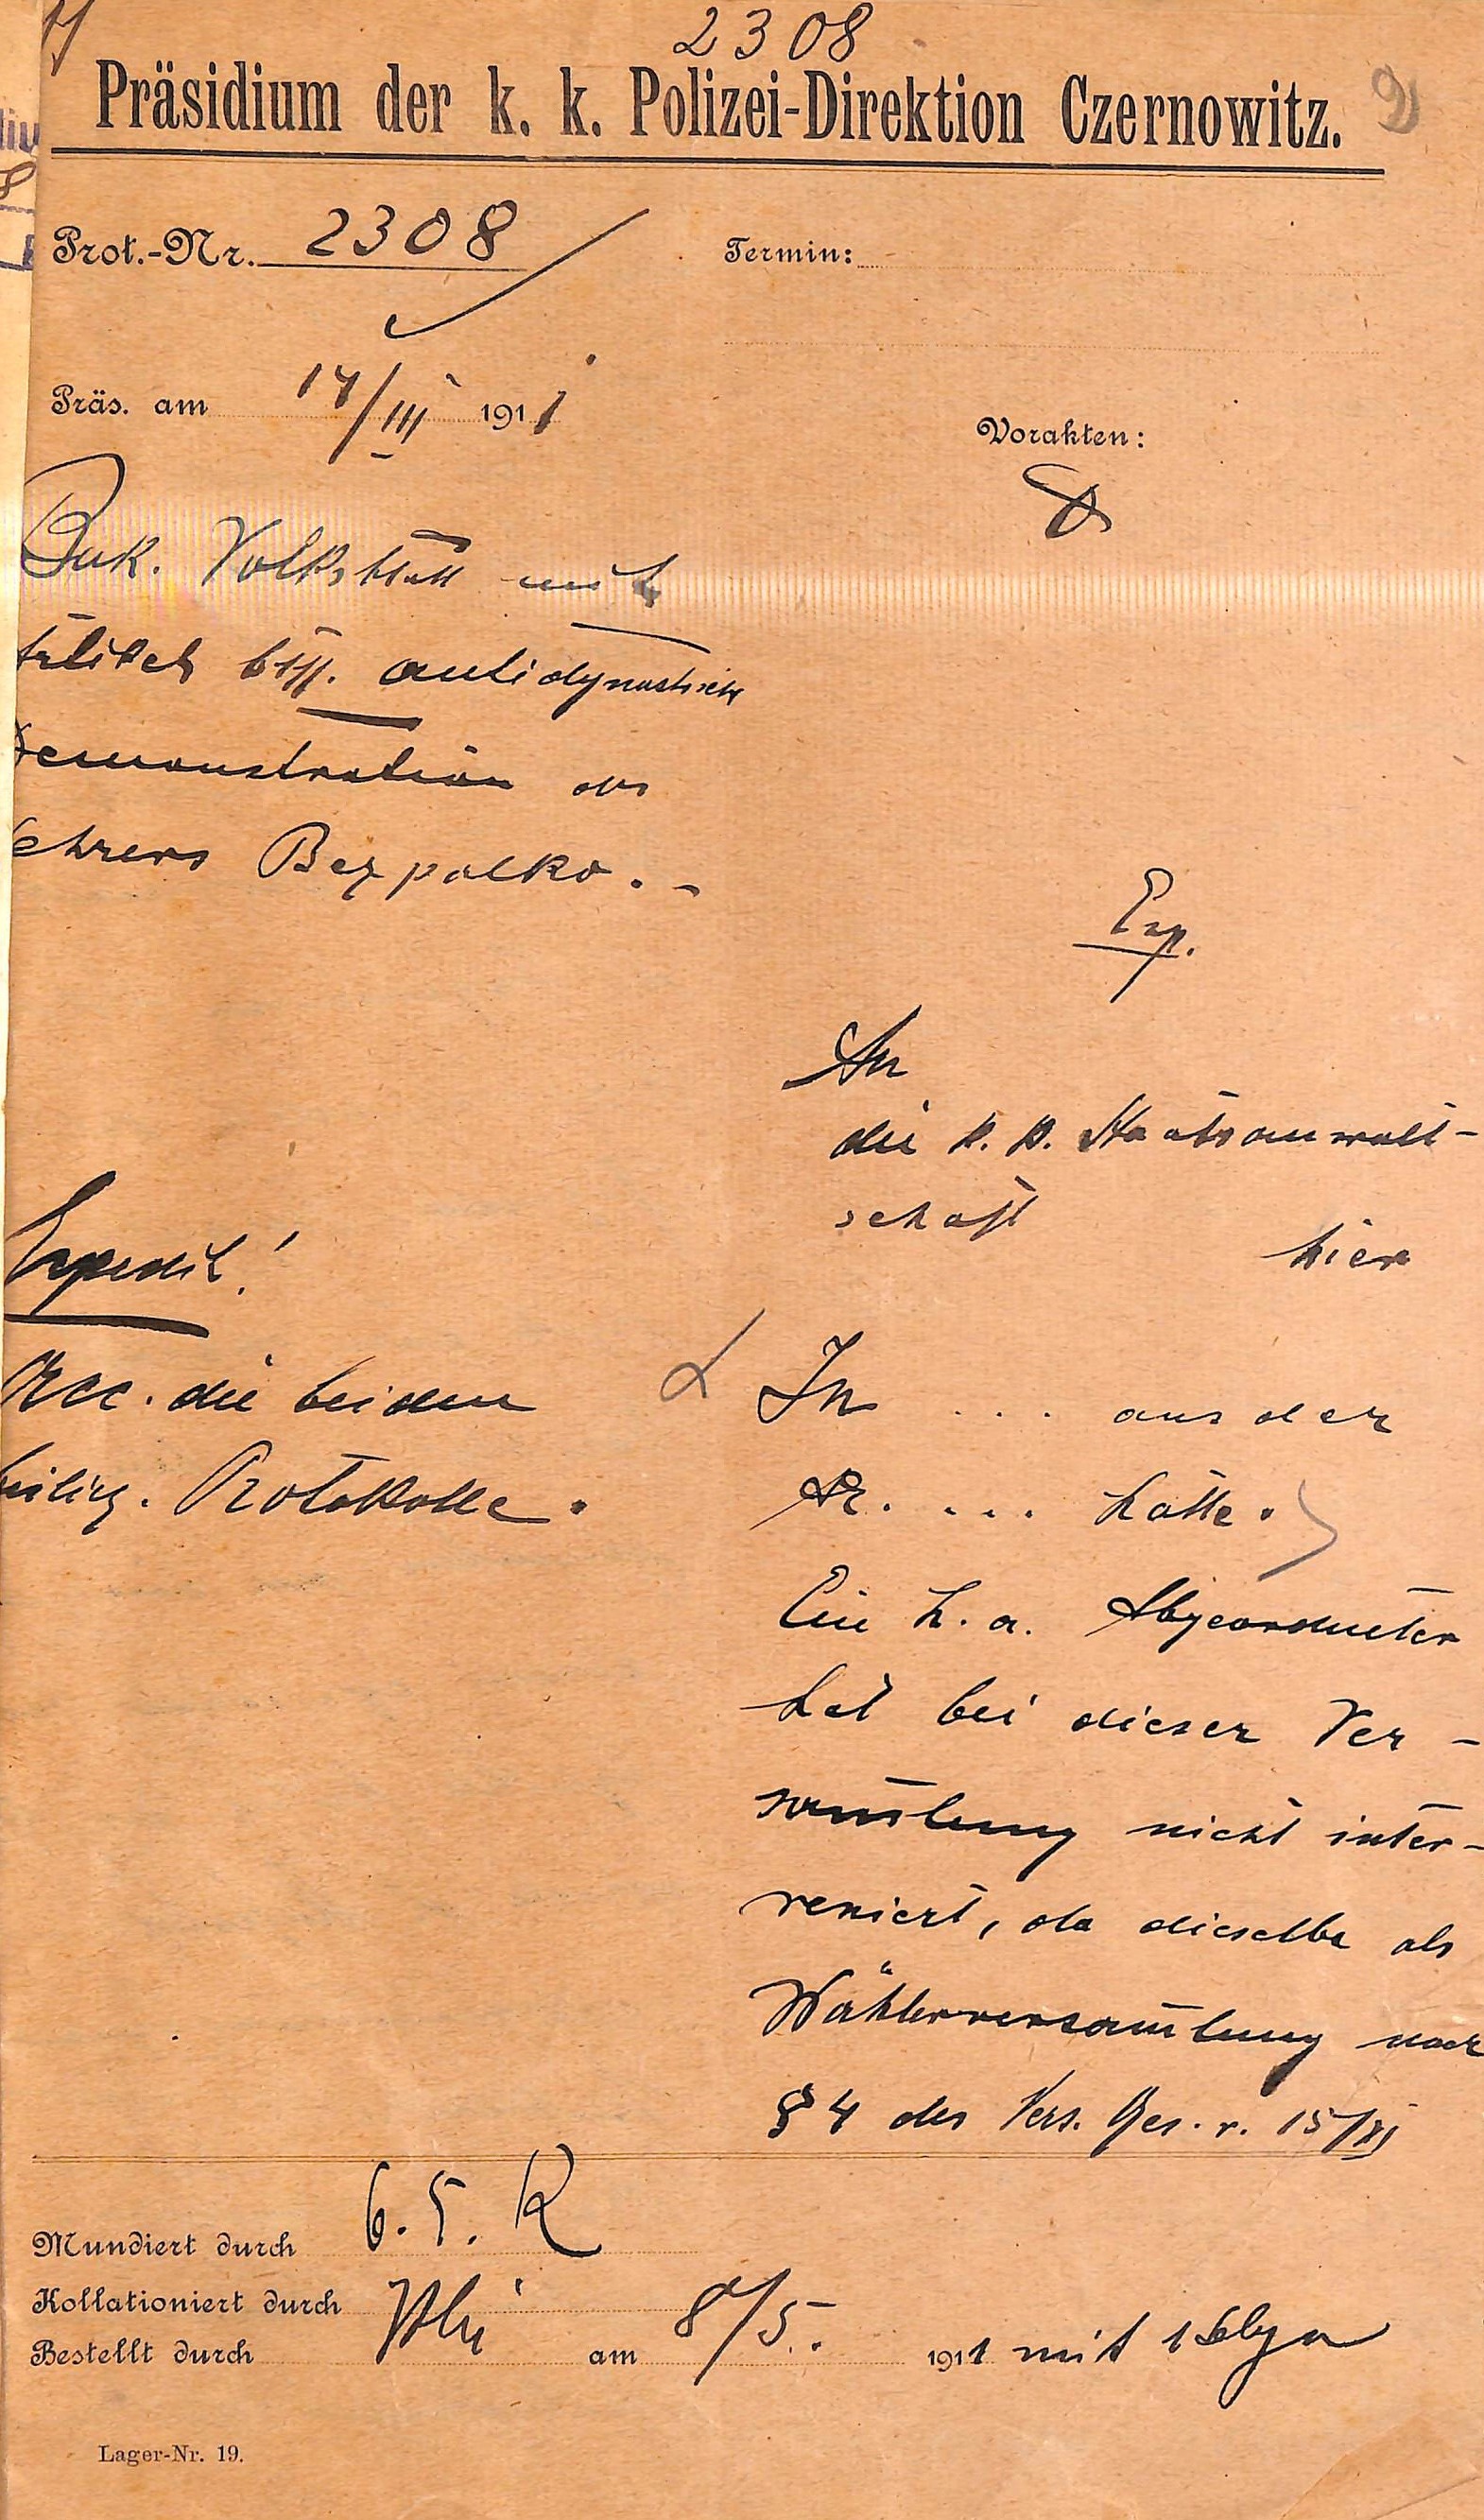 2308
Präsidium der k. k. Polizei-Direktion Czernowitz.
Prot.-Nr. 2308
Termin:
Präs. am 14/III 1911
Vorakten:
Buk. Volksblatt mit
Artikel btff. antidynastische
Demonstration des
Lehrers Bezpalko. -
Exp.
An
die k. k. Staatsanwalt-
schaft
hier
Expedit!
Acc. die beiden
beilieg. Protokolle.
In ... aus der
Ar. ... hatte.
Ein h. a. Abgeordneter
hat bei dieser Ver-
sam̄lung nicht inter-
veniert, da dieselbe als
Wählerversam̄lung nach
§ 4 des Vers. Ges. v. 15/XI
Mundiert durch 6. 5. R
Kollationiert durch
Bestellt durch am 8/5. 1911 mit 1
Lager-Nr. 19.